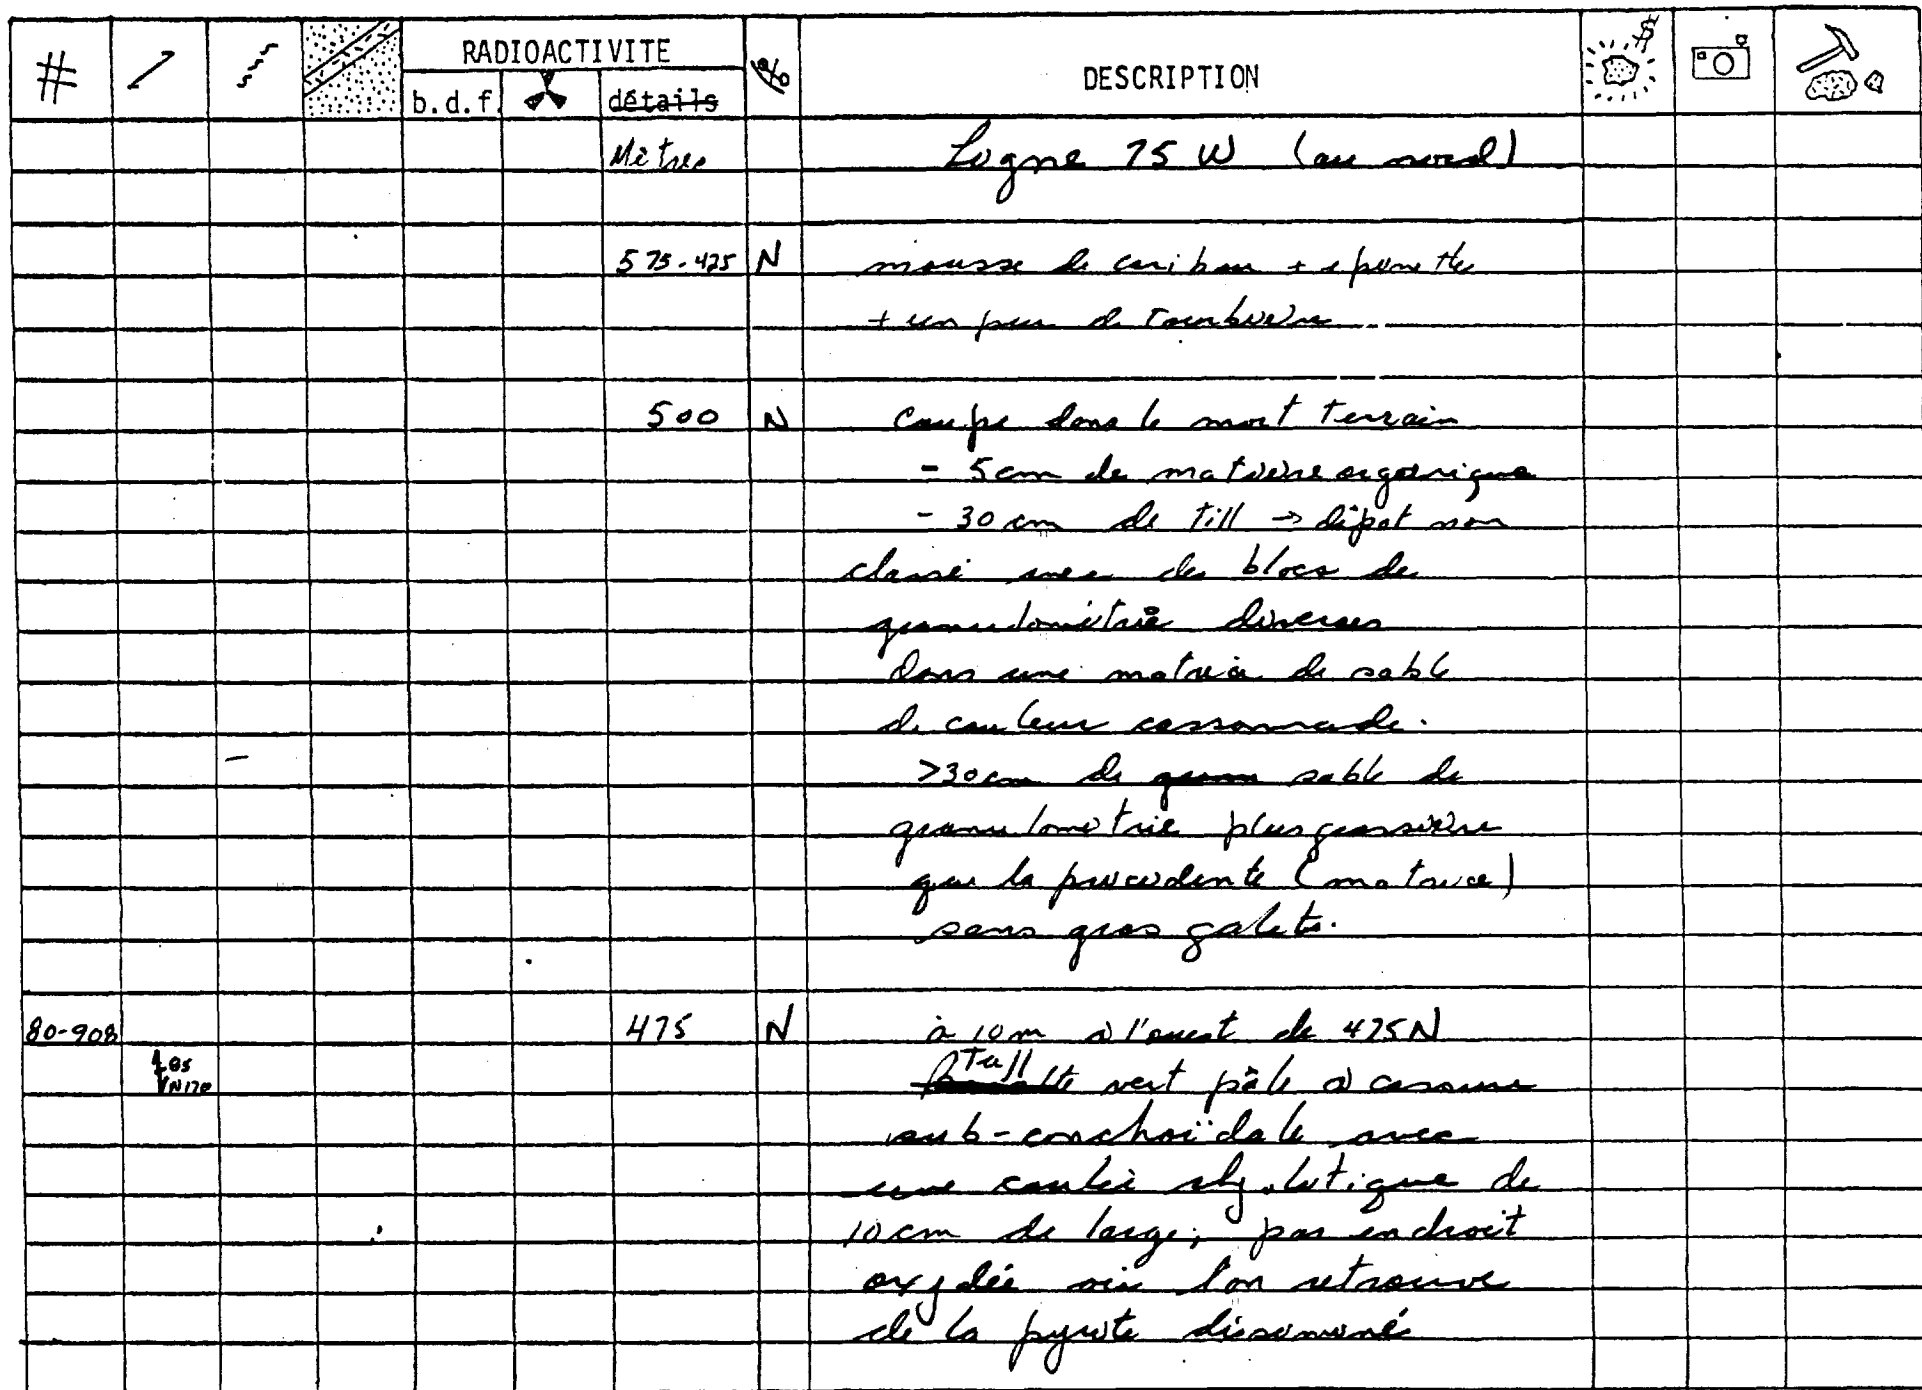 # RADIOACTIVITE % DESCRIPTION $
b.d.f. détails
Mètres Ligne 75 W (au nord)
575-425 N mousse de caribou + epinette
+ un peu de tourbière
500 N Coupe dans le mort terrain
- 5cm de matière organique
- 30 cm de till → dépot non
classé avec des blocs de
granulométrie diverses
dans une matrice de sable
de couleur cassonnade.
>30cm de sable de
granulométrie plus grossière
que la précédente (matrice)
sans gros galets.
80-908 475 N à 10m à l'ouest de 475N
Tuff
vert pâle à cassure
85
N170
sub-conchoïdale avec
une coulée rhyolitique de
10cm de large; par endroit
oxydée où l'on retrouve
de la pyrite disséminé